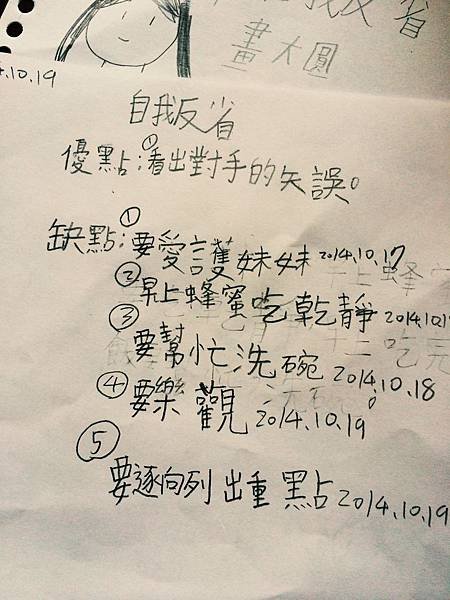 我反省
畫大圓
4.10.19
自我反省
優點:①看出對手的矢誤。
缺點:①要愛護妹妹2014.10.17
②早上蜂蜜吃乾靜2014.10.1
③要幫忙洗碗2014.10.18
④要樂觀2014.10.19
⑤要逐向列出重點2014.10.19